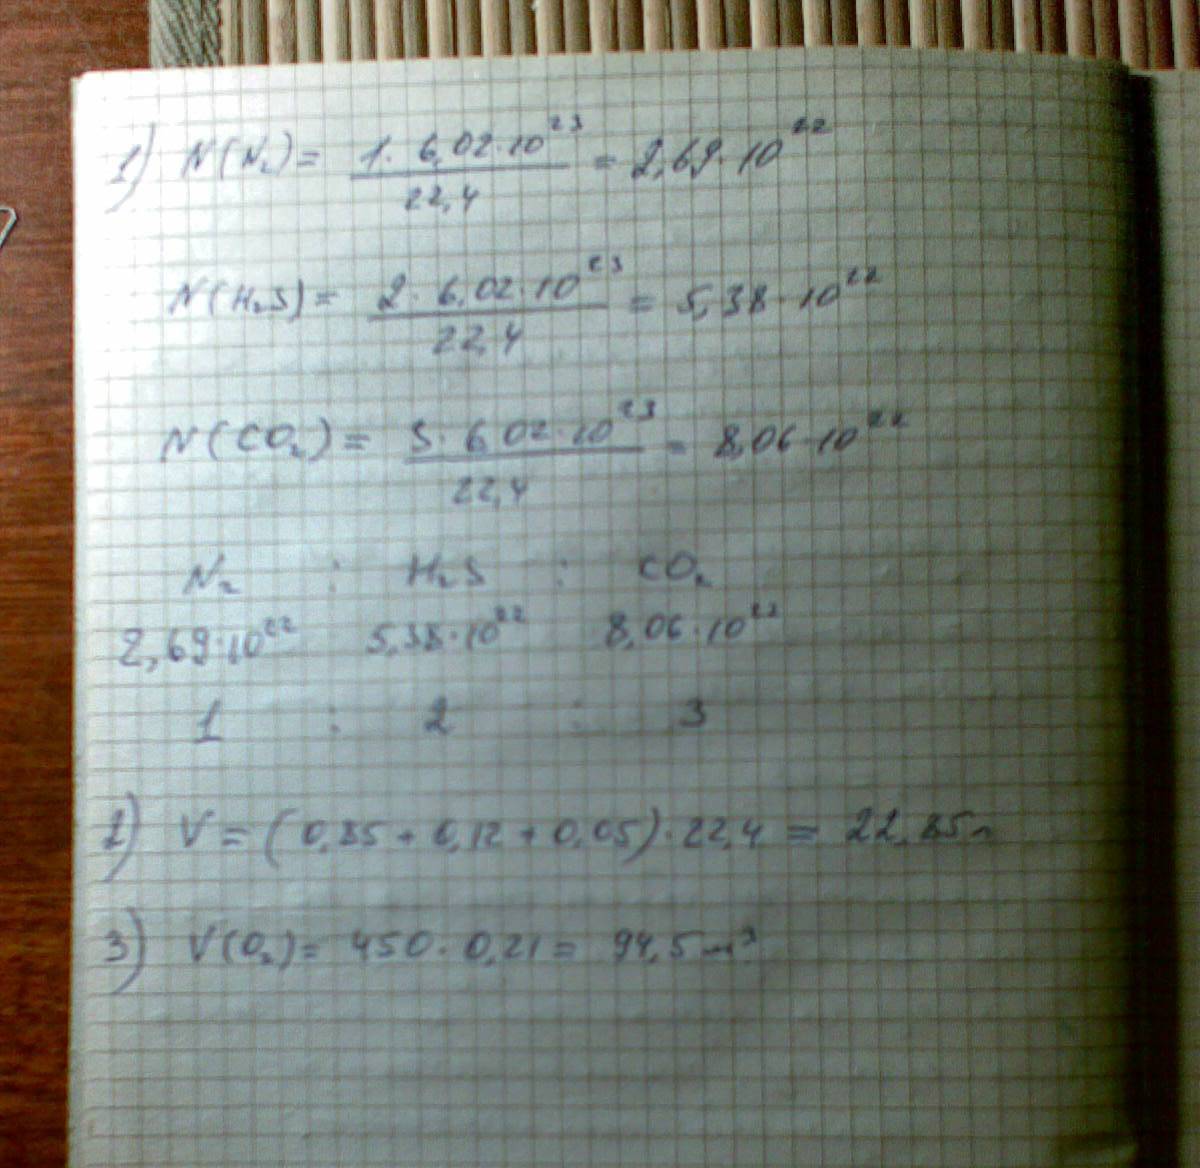 1) N(N₂) = 1 · 6,02 · 10²³ / 22,4 = 2,69 · 10²²
N(H₂S) = 2 · 6,02 · 10²³ / 22,4 = 5,38 · 10²²
N(CO₂) = 3 · 6,02 · 10²³ / 22,4 = 8,06 · 10²²
N₂ : H₂S : CO₂
2,69 · 10²² 5,38 · 10²² 8,06 · 10²²
1 : 2 : 3
2) V = (0,85 + 0,12 + 0,05) · 22,4 = 22,85л
3) V(O₂) = 450 · 0,21 = 94,5 м³